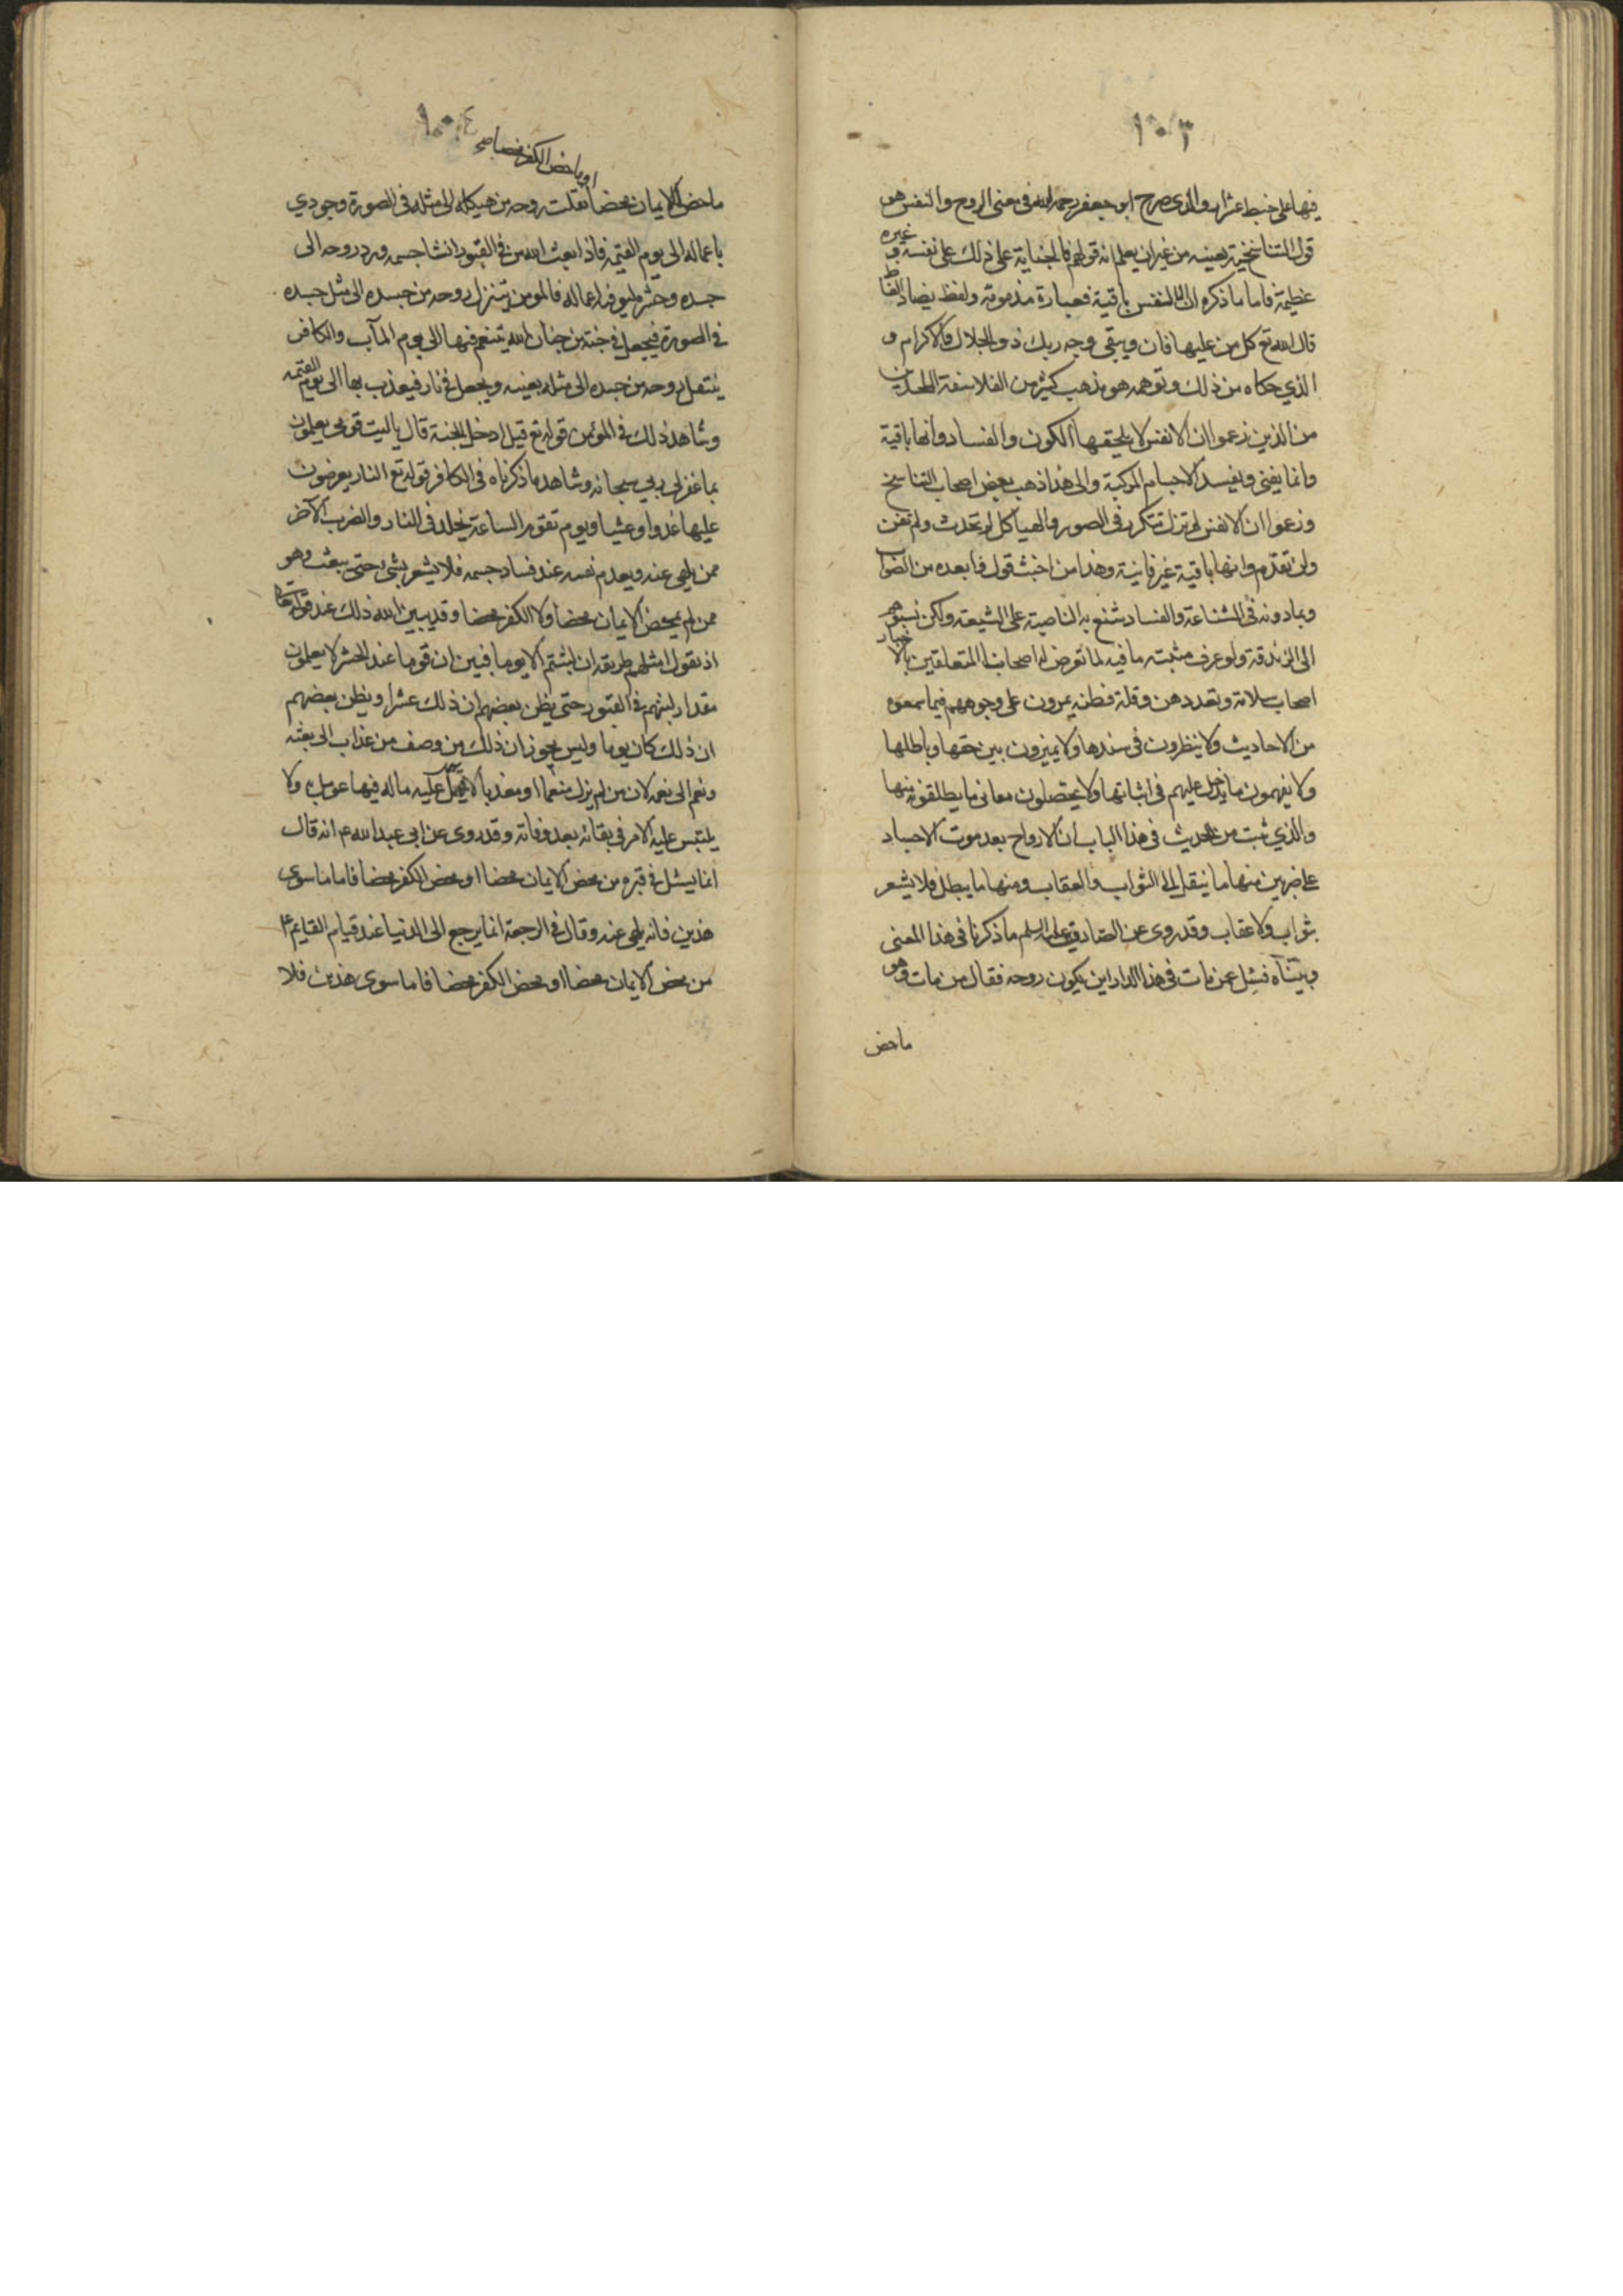 ١٠٣
فيها على خبط عشواء والذى صرح ابو جعفر رحمه الله فى معنى الروح والنفس هو
قول التناسخية بعينه من غير ان يعلم انه قولهم فالجناية على ذلك على نفسه وغيره
عظيمة فاما ما ذكره ان النفس باقية فعبارة مذمومة ولفظ يضاد الفاظ
قال الله تع كل من عليها فان ويبقى وجه ربك ذو الجلال والاكرام و
الذي حكاه من ذلك وتوهمه هو مذهب كثير من الفلاسفة الملحدين
من الذين زعموا ان الانفس لا يلحقها الكون والفساد وانها باقية
وانما يفنى ويفسد الاجسام المركبة والى هذا ذهب بعض اصحاب التناسخ
وزعموا ان الانفس لم تزل تتكرر فى الصور والهياكل لم تحدث ولم تفن
ولن تقدم وانها باقية غير فانية وهذا من اخبث قول فا بعده من الصواب
وبما دونه فى الشناعة والفساد شنع به الناصبة على الشيعة ولكن نسبوهم
الى الزندقة ولو عرف مثبته ما فيه لما تعرض له اصحابنا المتعلقين بالاخبار
اصحاب سلامة وبعد ذهن وقلة فطنه يمرون على وجوههم فيما سمعوه
من الاحاديث ولا ينظرون فى سندها ولا يميزون بين حقها وباطلها
ولا يفهمون ما يدخل عليهم فى اثباتها ولا يحتصلون معانى ما يطلقونه منها
والذي ثبت من الحديث فى هذا الباب ان الارواح بعد موت الاجساد
على ضربين منها ما ينقل الى الثواب والعقاب ومنها ما يبطل فلا يشعر
بثواب ولا عقاب وقد روى عن الصادق عليه السلم ما ذكرنا فى هذا المعنى
وبيناه فسئل عمن مات فى هذا الدار اين يكون روحه فقال من مات وهو
ماحض
١٠٤
او ماحض الكفر محضا صح
ماحض الايمان محضا نقلت روحه من هيكله الى مثله فى الصورة وجودي
باعماله الى يوم القيمة فاذا بعث الله من فى القبور انشا جسمه ورد روحه الى
جسده وحشره ليوفيه اعماله فالمومن يتنزل روحه من جسده الى مثل جسده
فى الصورة فيجعل فى جنة من جنان الله يتنعم فيها الى يوم المآب والكافر
ينتقل روحه من جسده الى مثله بعينه ويجعل فى نار فيعذب بها الى يوم القيمه
وشاهد ذلك فى المؤمن قوله تع قيل ادخل الجنة قال ياليت قومى يعلمون
بما غفر لى ربي سبحانه وشاهد ما ذكرناه فى الكافر قوله تع النار يعرضون
عليها غدوا وعشيا ويوم تقوم الساعة يخلد فى النار والضرب الآخر
ممن يلهى عنه ويعدم نفسه عند فساد جسمه فلا يشعر بشى حتى يبعث وهو
ممن لم يمحض الايمان محضا ولا الكفر محضا وقد يبين الله ذلك عند قوله تعالى
اذ يقول امثلهم طريقه ان لبثتم الا يوما فبين ان قوما عند الحشر لا يعلمون
مقدار لبثهم فى القبور حتى يظن بعضهم ان ذلك عشرا ويظن بعضهم
ان ذلك كان يوما وليس يجوز ان ذلك من وصف من عذاب الى بعثه
ونعم الى نعمه لان من لم يزل منعما او معذبا لا يجهل عليه ماله فيها عومل به ولا
يلتبس عليه الامر فى بقائه بعد وفاته وقد روى عن ابى عبد الله ع انه قال
انما يسئل فى قبره من محض الايمان محضا او محض الكفر محضا فاما ما سوى
هذين فانه يلهى عنه وقال فى الرجعة انما يرجع الى الدنيا عند قيام القايم ع
من محض الايمان محضا او محض الكفر محضا فاما سوى هذين فلا